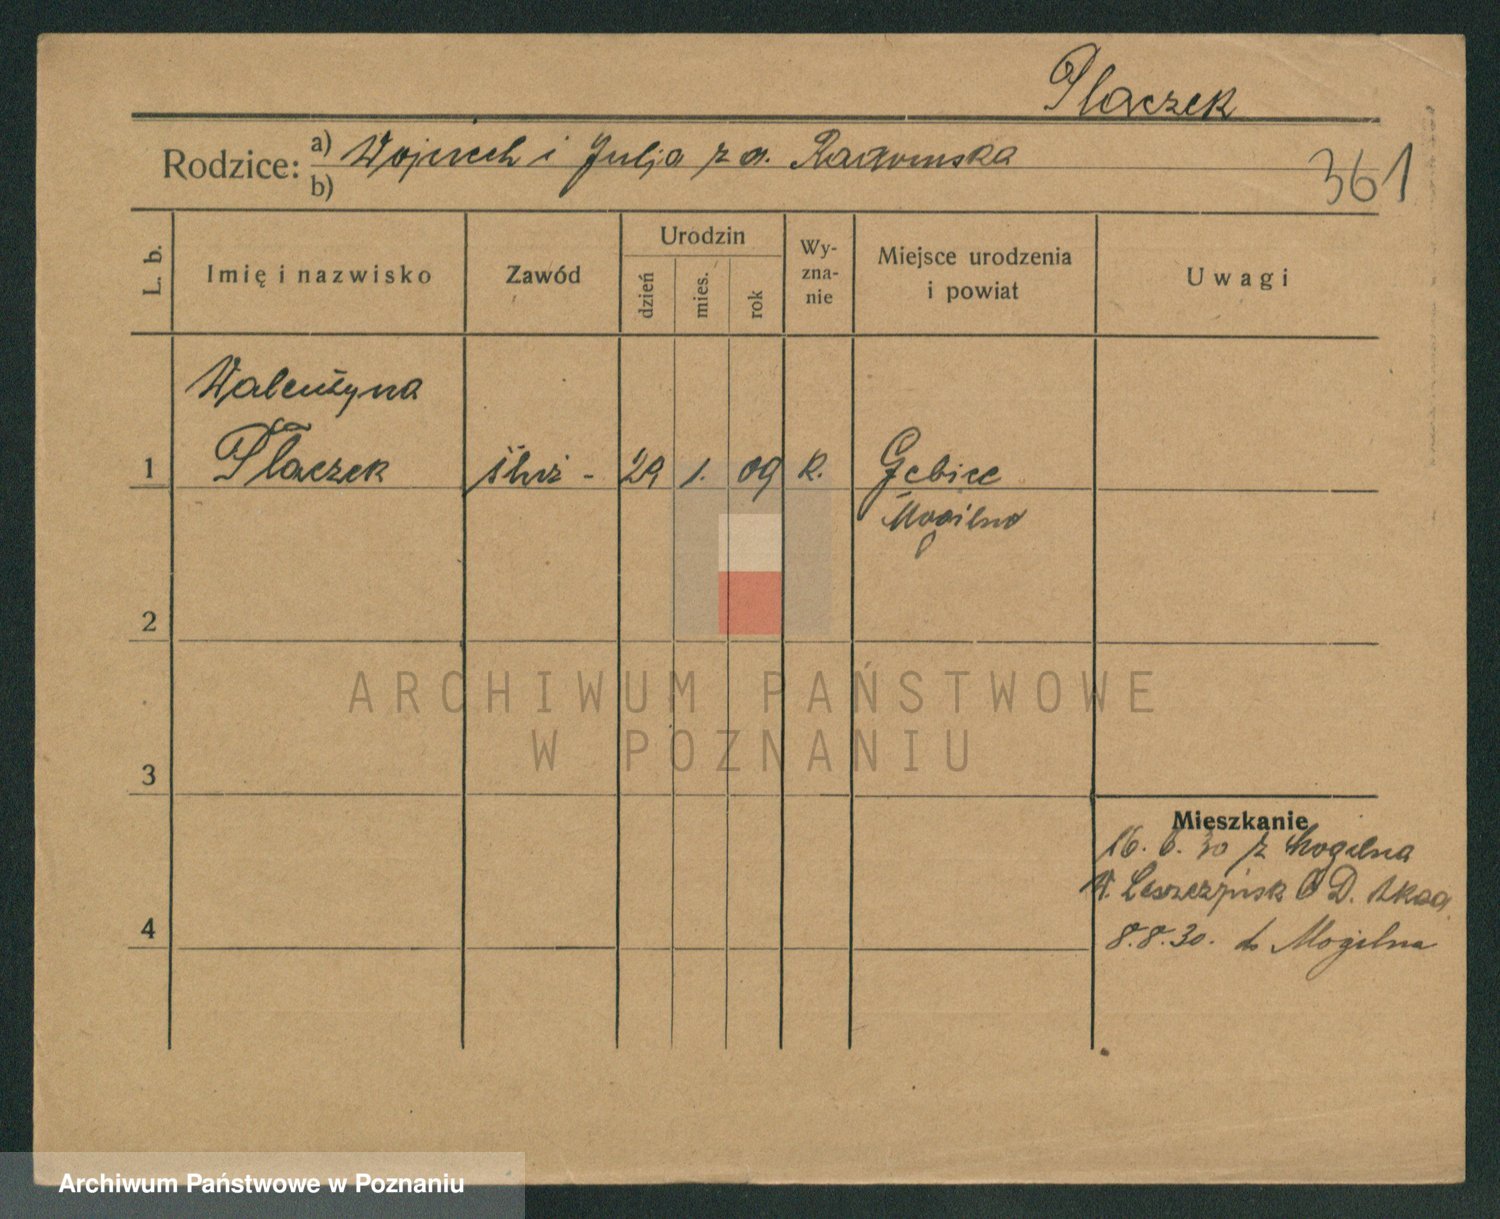 Placzek
Rodzice: a) Wojciech i Julja z d. Radomska
b)
361
L. b.
Imię i nazwisko
Zawód
Urodzin
dzień
mies.
rok
Wy-
zna-
nie
Miejsce urodzenia
i powiat
Uwagi
Walentyna
1 Płaczek służ - 29 1. 09 R. Gębice
Mogilno
2
ARCHIWUM PAŃSTWOWE
W POZNANIU
3
Mieszkanie
16. 6. 30 z Mogilna
8.8.30. do Mogilna
4
Archiwum Państwowe w Poznaniu